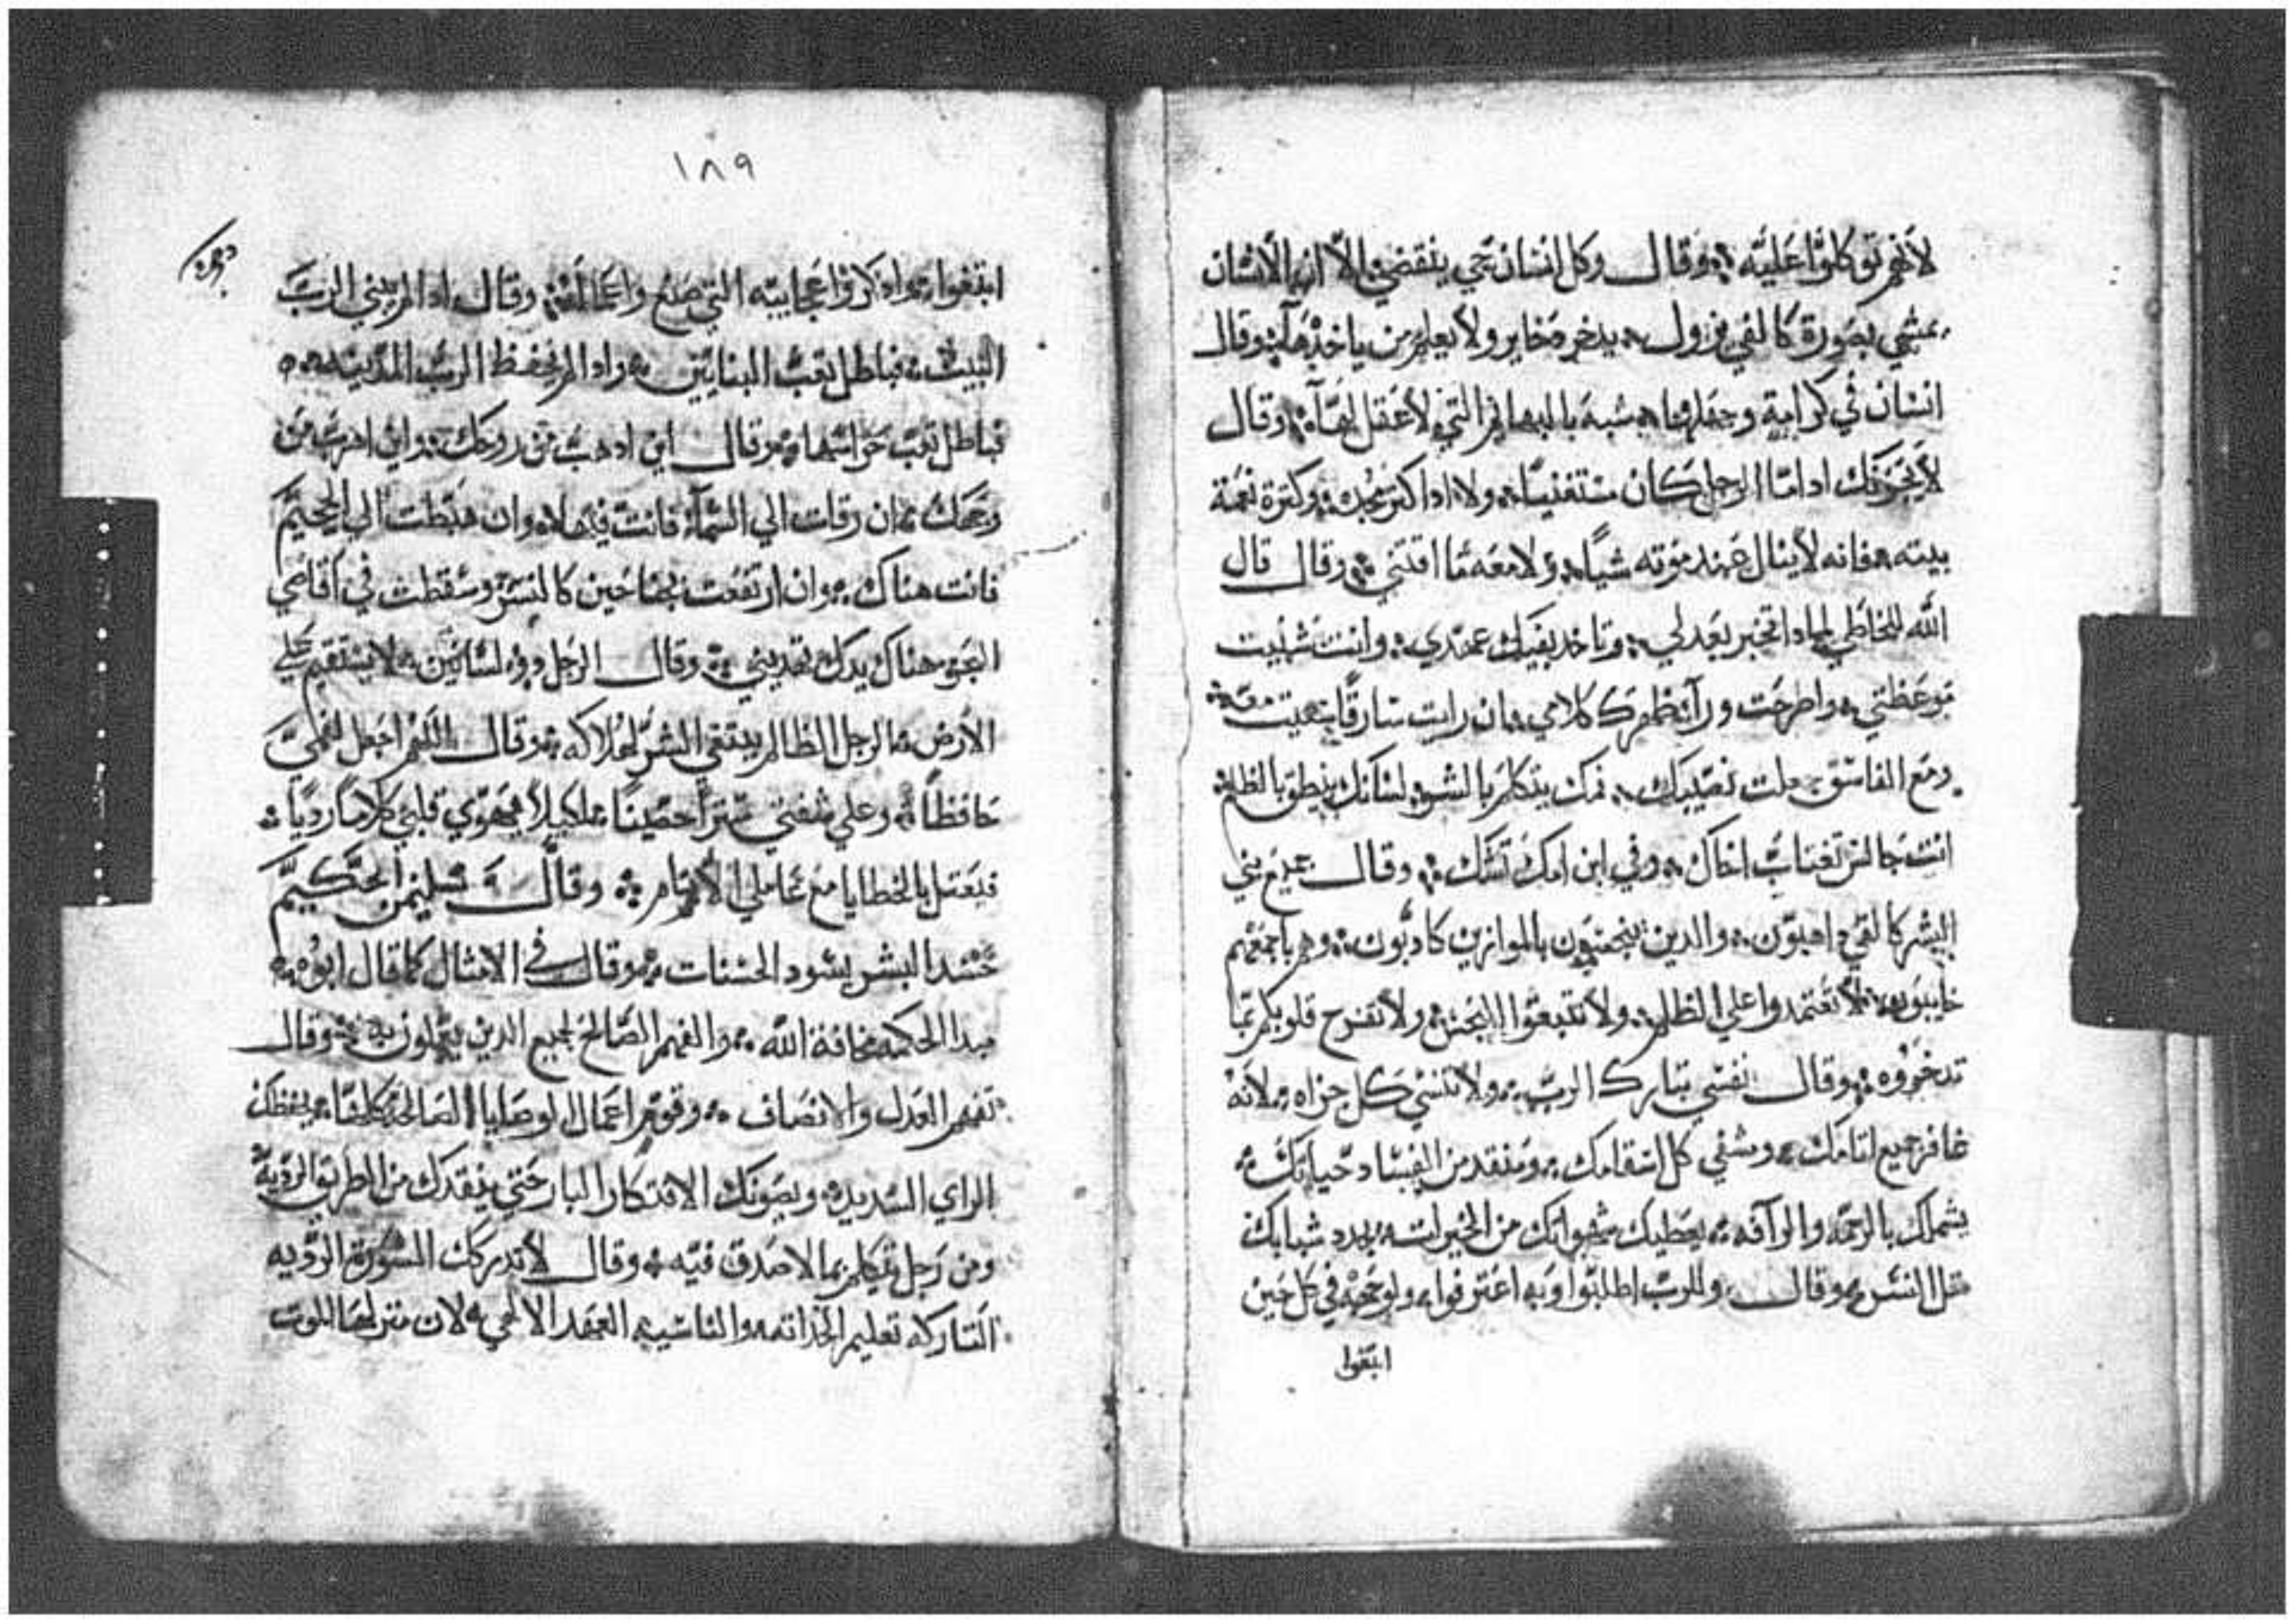 لانهم توكلوا عليه وقال وكل انسان حي ينقضي الا ان الانسان
يمشي بصورة كالفي يزول يدخر دخاير ولا يعلم من ياخذها وقال
انسان في كرامة وجعلها شبه بالبهايم التي لا عقل لها وقال
لا يحزنك اداما الرجل كان مستغنيا ولا ادا كتر مجده وكترة نعمة
بيته فانه لا ينال عند موته شيا ولا معه ما اقتني وقال قال
الله للخاطي لمادا تخبر بعدلي وتاخد بفيك عهدي وانت شنيت
موعظتي واطرحت ورآ ظهرك كلامي ان رايت سارقا سعيت معه
ومع الفاسق جعلت نصيبك فمك يتكلم بالسو لسانك ينطق بالظلم
انت جالس تغتاب اخاك وفي ابن امك تشك وقال جميع بني
البشر كالقي والدين بالموازين كادبون وهم باجمعهم
خايبون لا تعتمدوا علي الظلم ولا تتبعوا ولا تفرح قلوبكم بما
تدخروه وقال نفسي تبارك الرب ولا تنسي كل جزاه لانه
غافر جميع اتامك ومشفي كل اسقامك ومنقد من الفساد حياتك
يشملك بالرحمه والرآفه يعطيك شهواتك من الخيرات يجدد شبابك
متل النسر وقال وللرب اطلبوا وبه اعترفوا ولوجهه في كل حين
ابتغوا
١٨٩
ابتغوا وادكروا عجايبه التي صنع واعمالهم وقال ادا لم يبني الرب
البيت فباطل تعب البنايين وادا لم يحفظ الرب المدينه
فباطل تعب حراسها وقال اين ادهب من روحك واين اهرب من
وجهك ان رقات الي السمآ فانت فيها وان هبطت الي الجحيم
فانت هناك وان ارتفعت بجناحين كالنسر وسقطت في اقاصي
البحر هناك يدك تهديني وقال الرجل دو لسانين لا يستقيم علي
الارض الرجل الظالم يبتغي الشر لهلاكه وقال اللهم اجعل لفمي
حافظا وعلي شفتي سترا حصينا لكيلا يهوي قلبي كلاما رديا
فيعتل بالخطايا مع عاملي الاتام وقال سليمن الحكيم
حسد البشر يسود الحسنات وقال في الامتال كما قال ابوه
مبدا الحكمه مخافة الله والفهم الصالح لجميع الدين يعملون به وقال
تفهم العدل والانصاف وقوم اعمال الوصايا الصالحة كلها يحفظك
الراي السديد ويصونك الافتكار البار حتي ينقدك من الطريق الردية
ومن رجل يتكلم بما لا صدق فيه وقال لا تدركك المشورة الرديه
التاركه تعليم الحداته والناسيه العهد الالاهي لان منزلها الموت